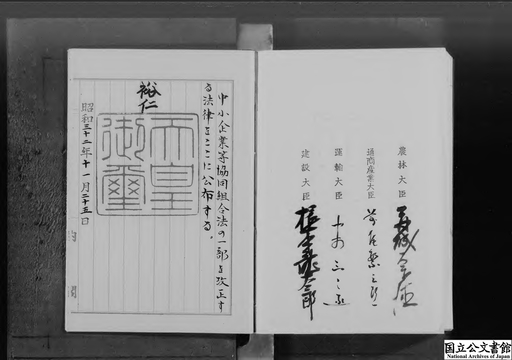 農林大臣
通商産業大臣
運輸大臣
建設大臣
中小企業等協同組合法の一部を改正す
る法律をここに公布する。
裕仁
天皇御璽
昭和三十二年十一月二十五日
国立公文書館
National Archives of Japan